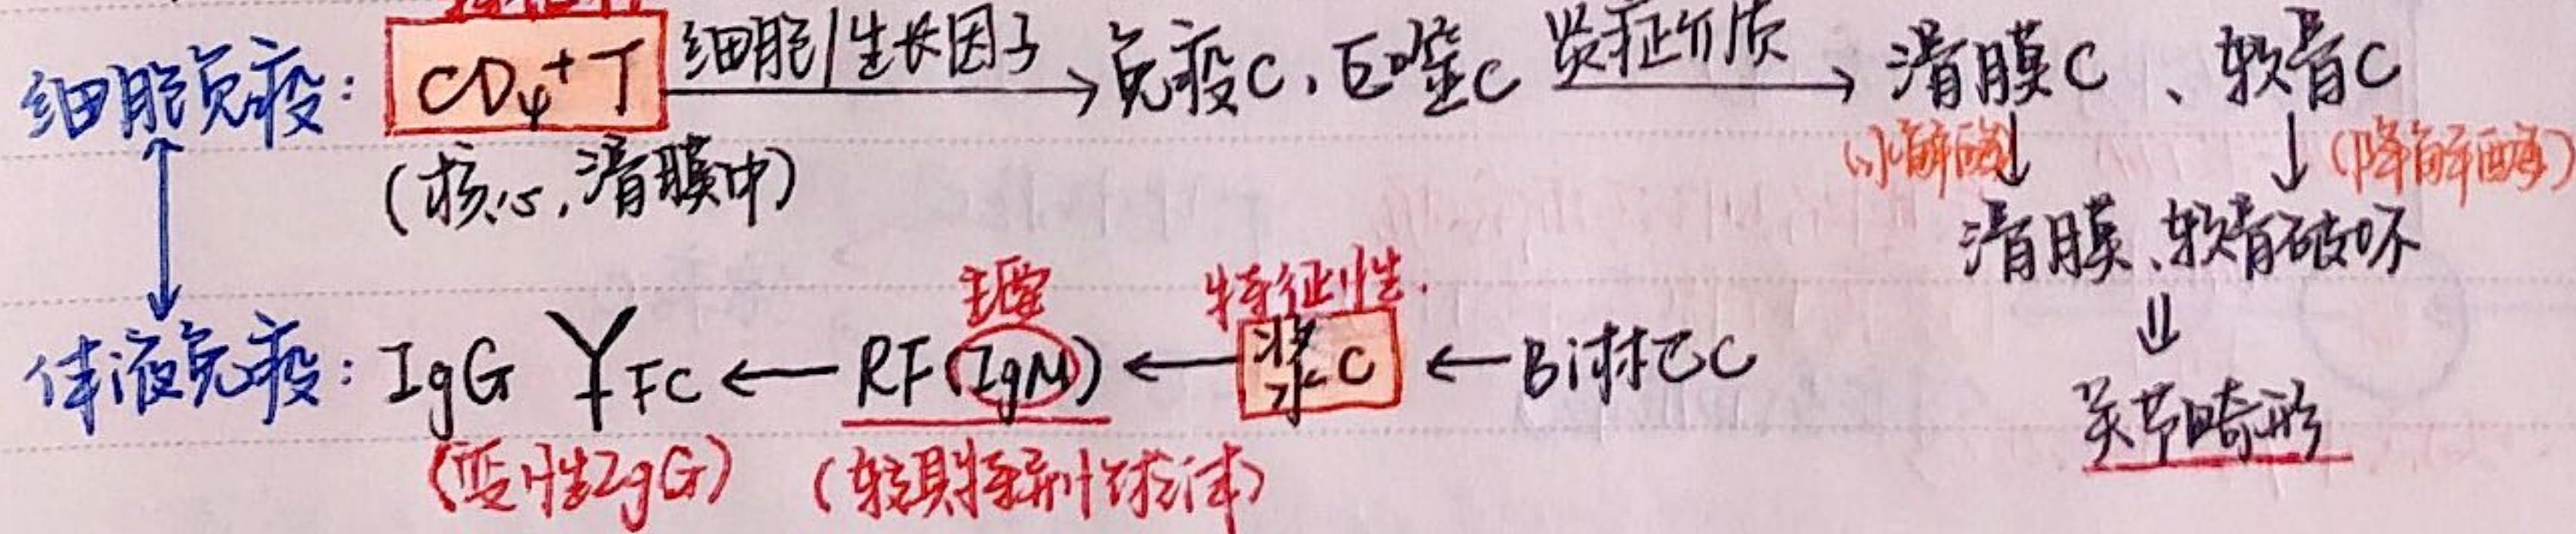 细胞免疫: CD4+T 细胞/生长因子 → 免疫C、巨噬C 炎症介质 → 滑膜C、软骨C
(核心,滑膜中) ↓ ↓(降解酶)
滑膜、软骨破坏
主要 特征性.
⇓
体液免疫: IgG Y FC ← RF(IgM) ← 浆C ← B淋巴C
关节畸形
(变性IgG) (较具特异性抗体)